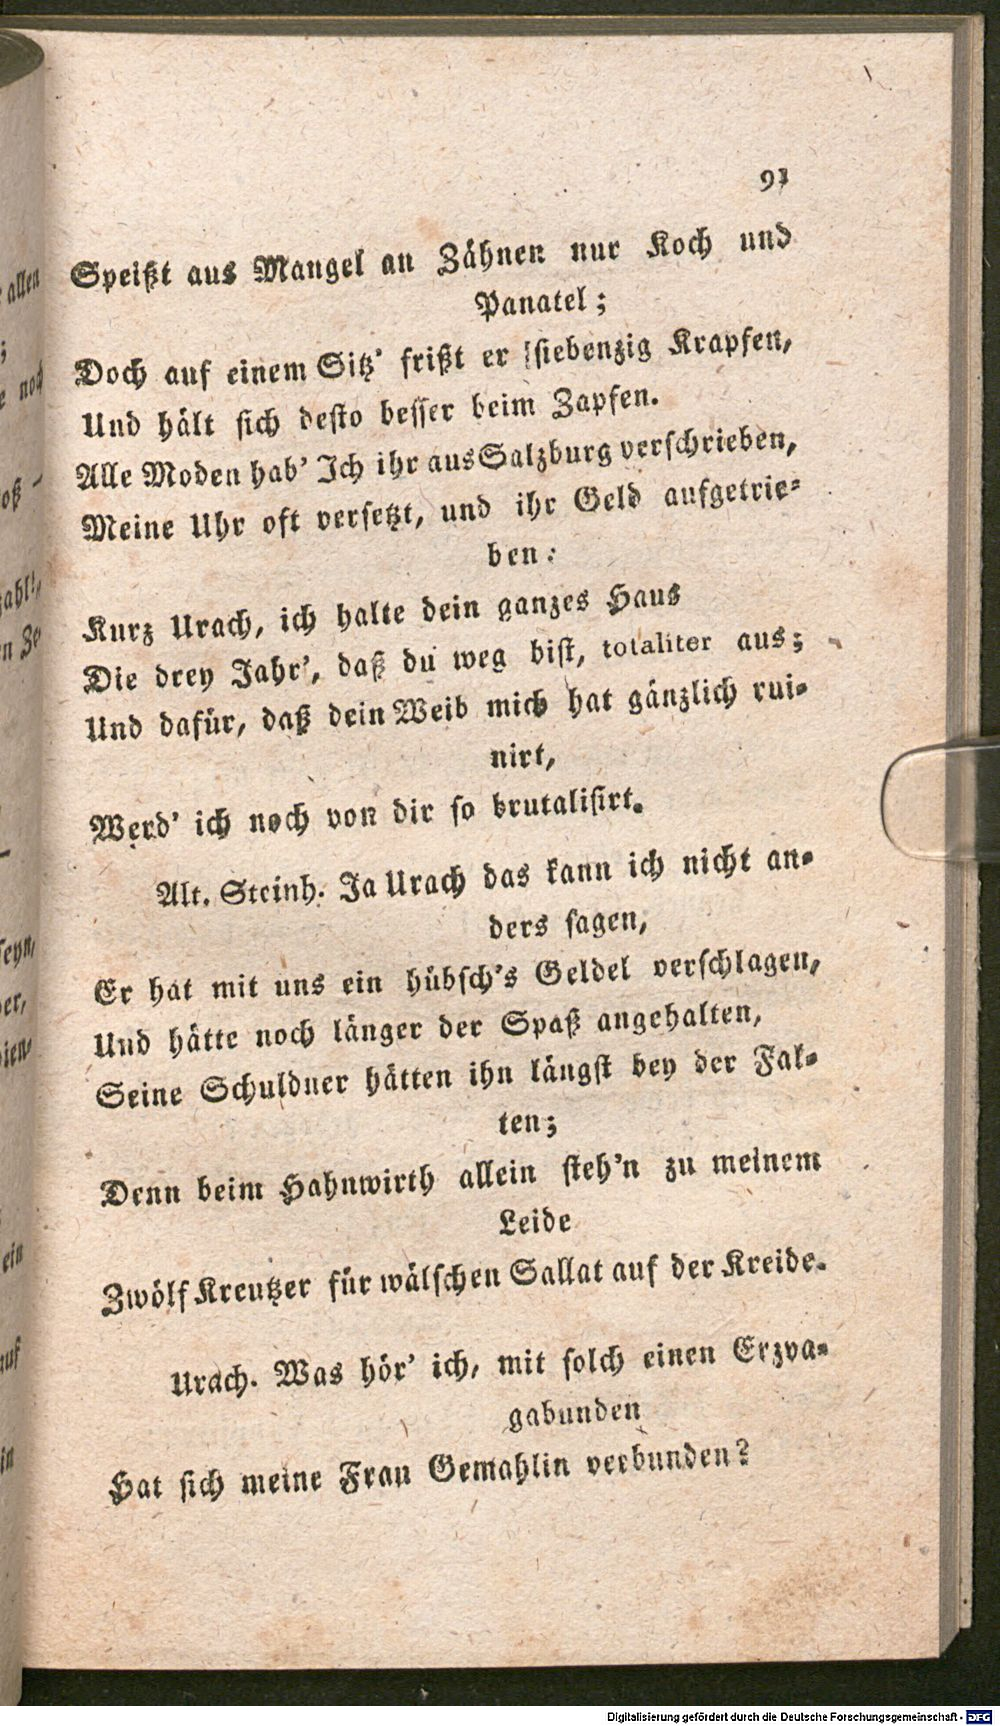 91
Speißt aus Mangel an Zähnen nur Koch und
Panatel;
Doch auf einem Sitz' frißt er siebenzig Krapfen,
Und hält sich desto besser beim Zapfen.
Alle Moden hab' Ich ihr aus Salzburg verschrieben,
Meine Uhr oft versetzt, und ihr Geld aufgetrie-
ben:
Kurz Urach, ich halte dein ganzes Haus
Die drey Jahr', daß du weg bist, totaliter aus;
Und dafür, daß dein Weib mich hat gänzlich rui-
nirt,
Werd' ich noch von dir so brutalisirt.
Alt. Steinh. Ja Urach das kann ich nicht an-
ders sagen,
Er hat mit uns ein hübsch's Geldel verschlagen,
Und hätte noch länger der Spaß angehalten,
Seine Schuldner hätten ihn längst bey der Fal-
ten;
Denn beim Hahnwirth allein steh'n zu meinem
Leide
Zwölf Kreutzer für wälschen Sallat auf der Kreide.
Urach. Was hör' ich, mit solch einen Erzva-
gabunden
Hat sich meine Frau Gemahlin verbunden?
allen
;
noch
oß -
zahl!,
n Ze
seyn,
er,
ien-
ein
auf
in
Digitalisierung gefördert durch die Deutsche Forschungsgemeinschaft - DFG